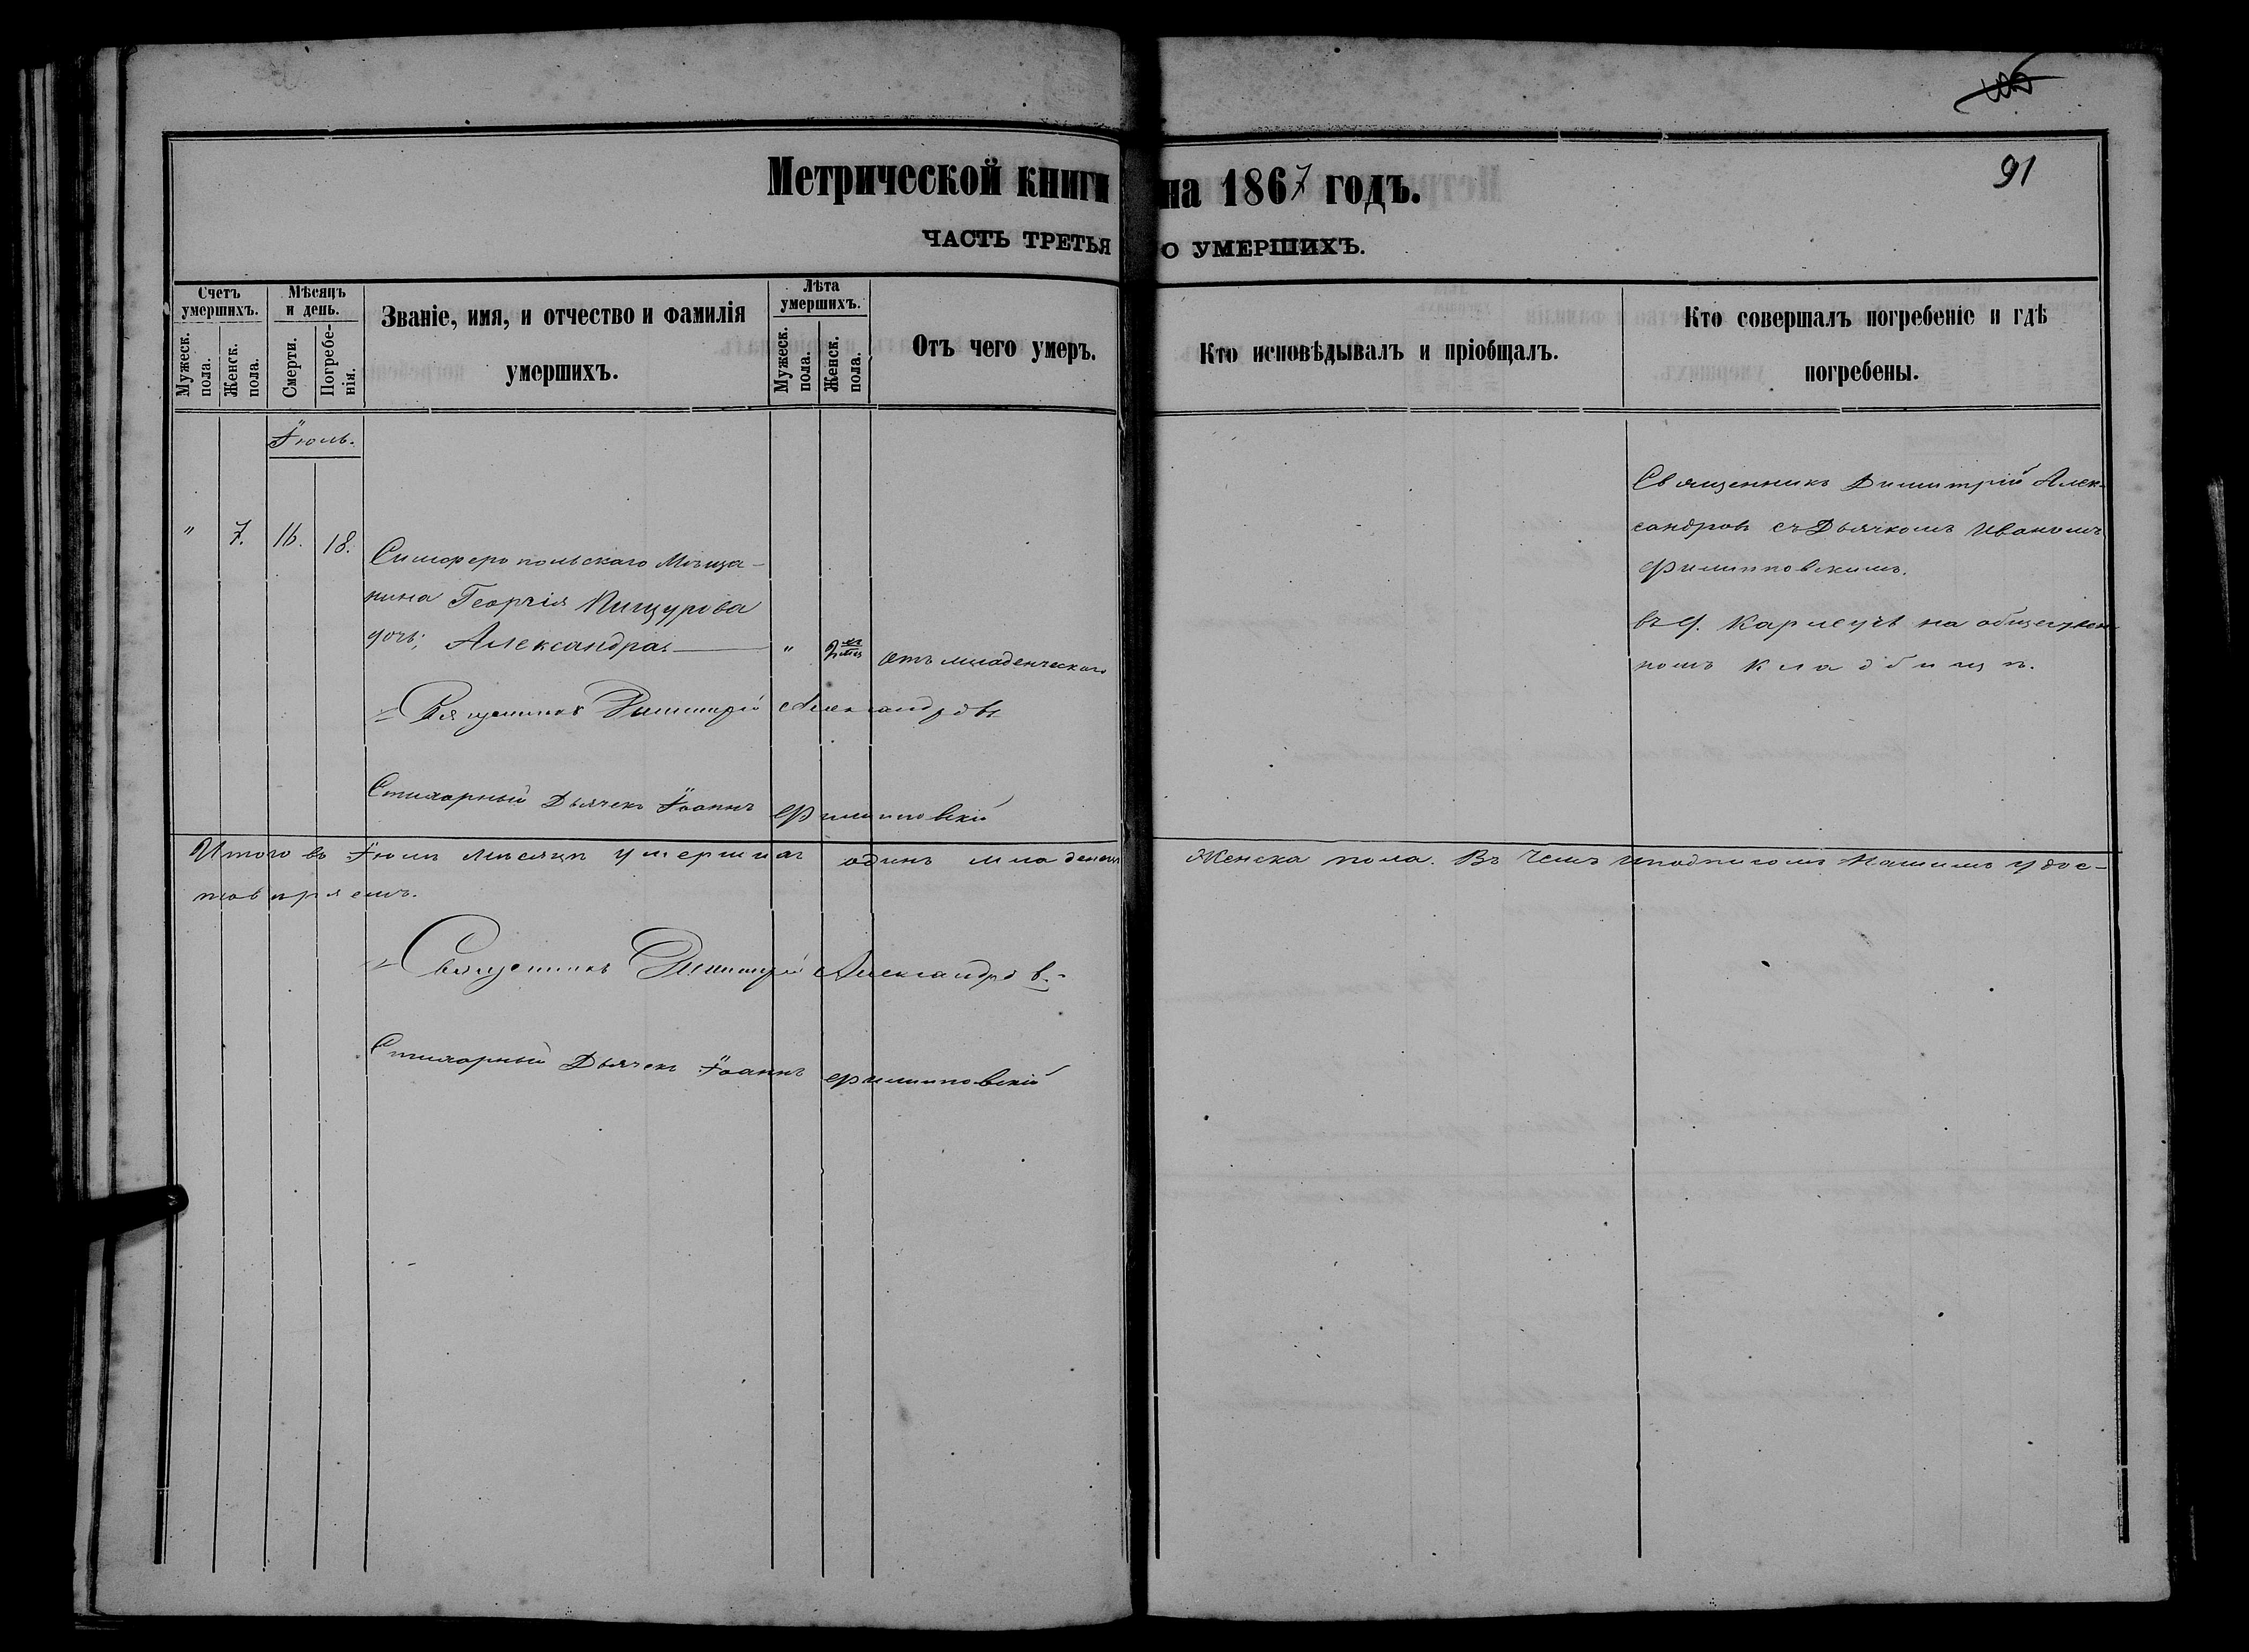 91
Метрической книги на 1867 годъ.
ЧАСТЬ ТРЕТЬЯ О УМЕРШИХЪ.
Счетъ умершихъ.
Мужеск. пола.
Женск. пола.
Мѣсяцъ и день.
Смерти.
Погребе-нія.
Званіе, имя, и отчество и фамилія
умершихъ.
Лѣта умершихъ.
Мужеск. пола.
Женск. пола.
Отъ чего умеръ.
Кто исповѣдывалъ и пріобщалъ.
Кто совершалъ погребеніе и гдѣ
погребены.
Іюль.
" 7. 16. 18.
Симферопольскаго Мѣща-
нина Георгія Пищурова
дочь; Александра "
отъ младенческаго
Священникъ Димитрій Алек-
сандровъ съ Дьячкомъ Иваномъ
Филипповскимъ.
въ д. Карлеутѣ на обществен-
номъ кладбищѣ.
Священникъ Димитрій Александровъ
Стихарный Дьячекъ Іоаннъ Филипповскій
Итого въ Іюлѣ мѣсяцѣ умершихъ одинъ младенецъ Женска пола. Въ чемъ и подписомъ нашимъ удос-
товѣряемъ.
Священникъ Димитрій Александровъ.
Стихарный Дьячекъ Іоаннъ Филипповскій